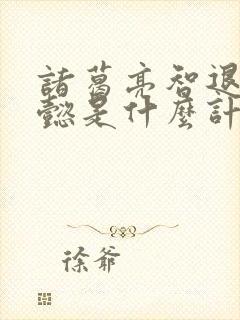 諸葛亮智退
懿是什麼計
徐爺